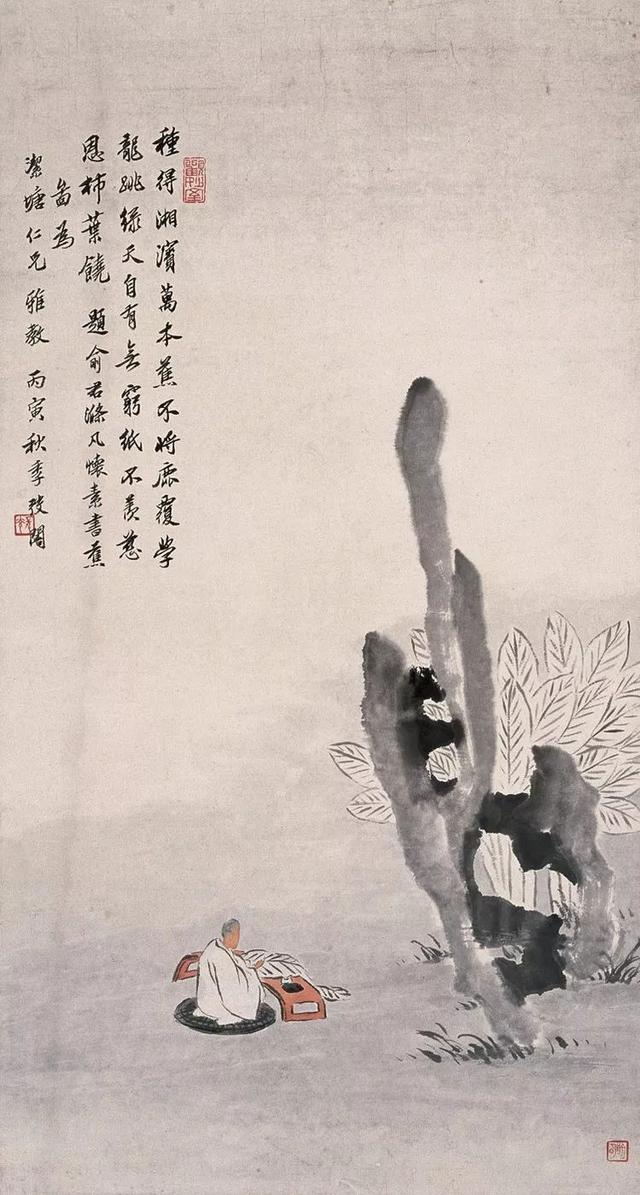 種得湘濱萬本蕉不將鹿覆學
龍跳綠天自有無窮紙不羨慈
恩柿葉饒 題俞君滌凡懷素書蕉
圖為
潔塘仁兄雅教 丙寅秋季弢